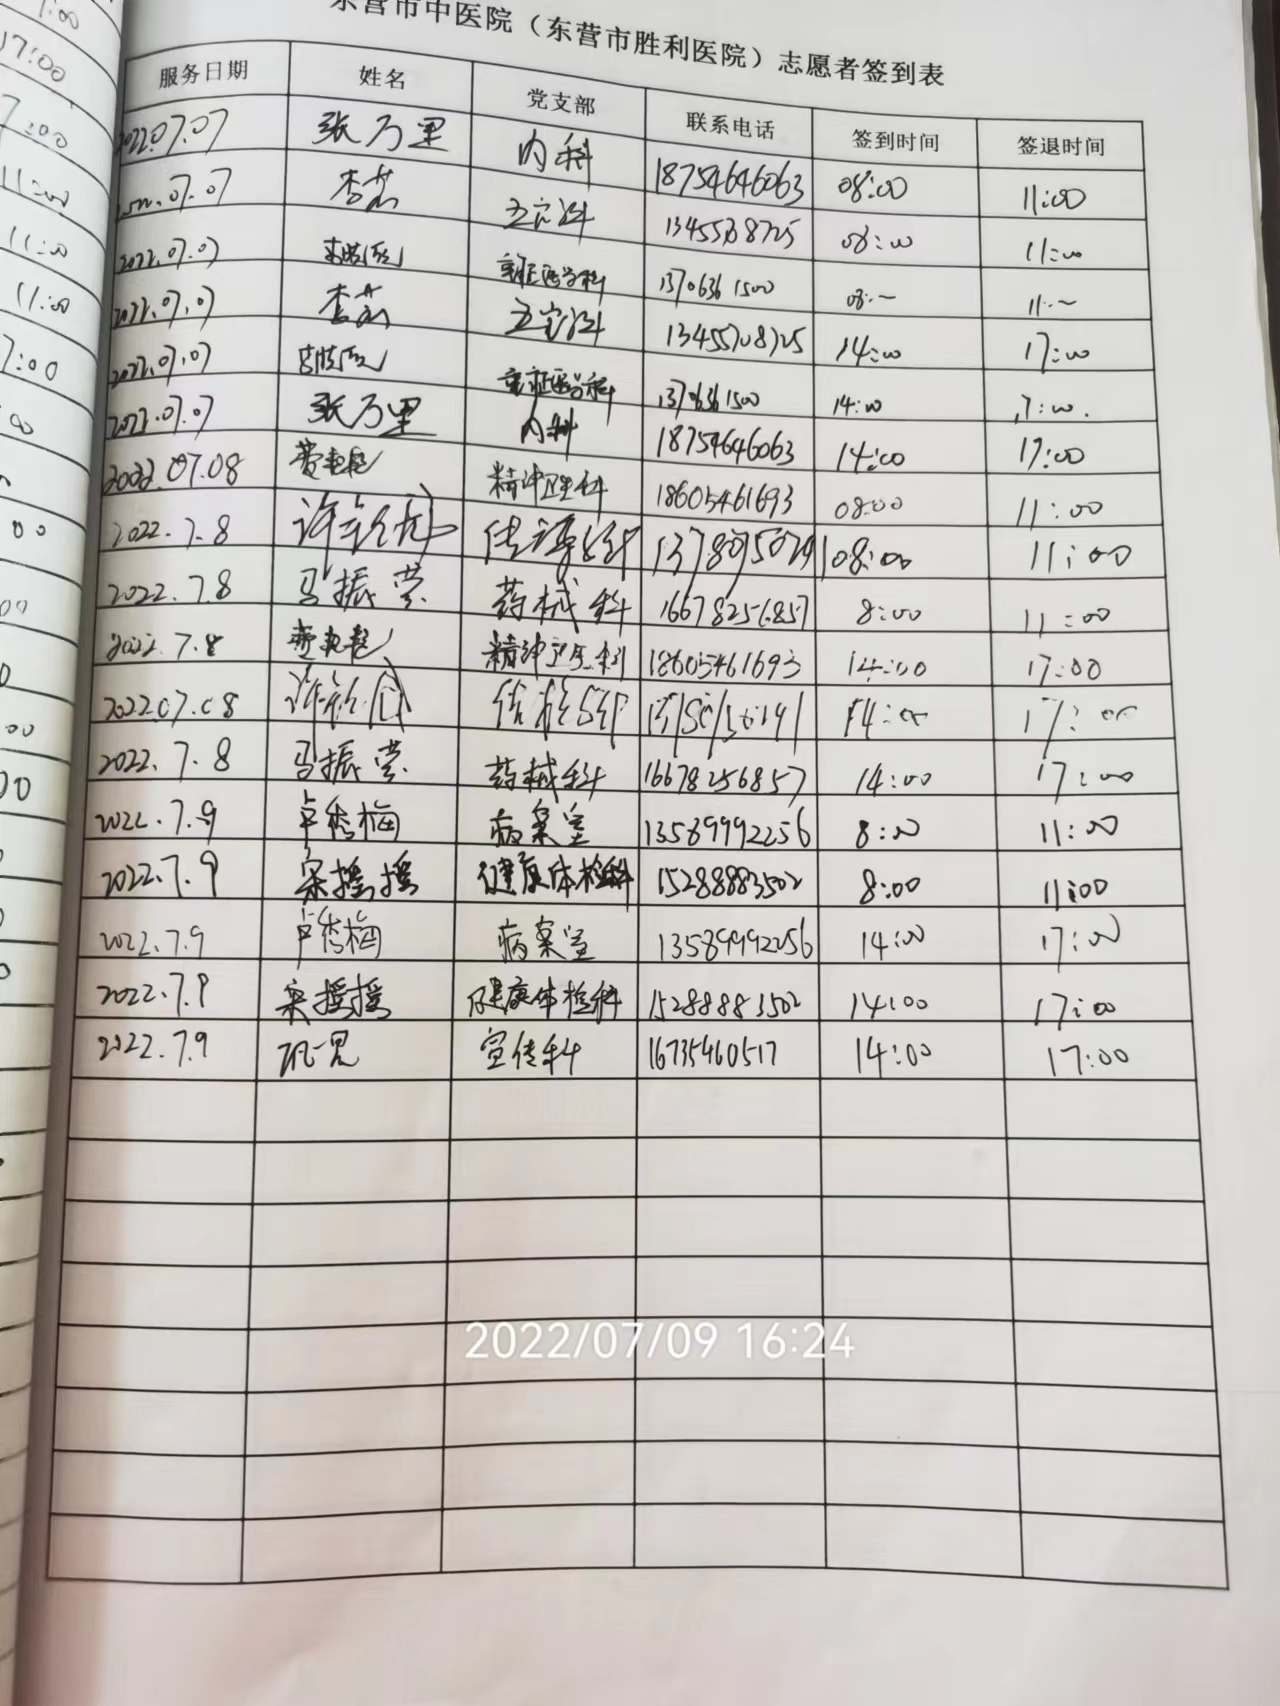 东营市中医院（东营市胜利医院）志愿者签到表
服务日期 姓名 党支部 联系电话 签到时间 签退时间
2022.07.07 张万里 内科 18754646063 08:00 11:00
2022.07.07 李茹 13455708725 08:00 11:00
2022.07.07 重症医学科 13706361500 08:~ 11:~
2022.07.07 李茹 13455708725 14:00 17:00
2022.07.07 重症医学科 13706361500 14:00 17:00.
2022.07.07 张万里 内科 18754646063 14:00 17:00
2022.07.08 精神卫生科 18605461693 08:00 11:00
2022.7.8 08:00 11:00
2022.7.8 马振营 药械科 16678256857 8:00 11:00
2022.7.8 精神卫生科 18605461693 14:00 17:00
2022.07.08 14:00 17:00
2022.7.8 马振营 药械科 16678256857 14:00 17:00
2022.7.9 卓秀梅 病案室 13589992256 8:00 11:00
2022.7.9 宋摇摇 健康体检科 15288883502 8:00 11:00
2022.7.9 卓秀梅 病案室 13589992256 14:00 17:00
2022.7.9 宋摇摇 健康体检科 15288883502 14:00 17:00
2022.7.9 宣传科 16735460517 14:00 17:00
2022/07/09 16:24